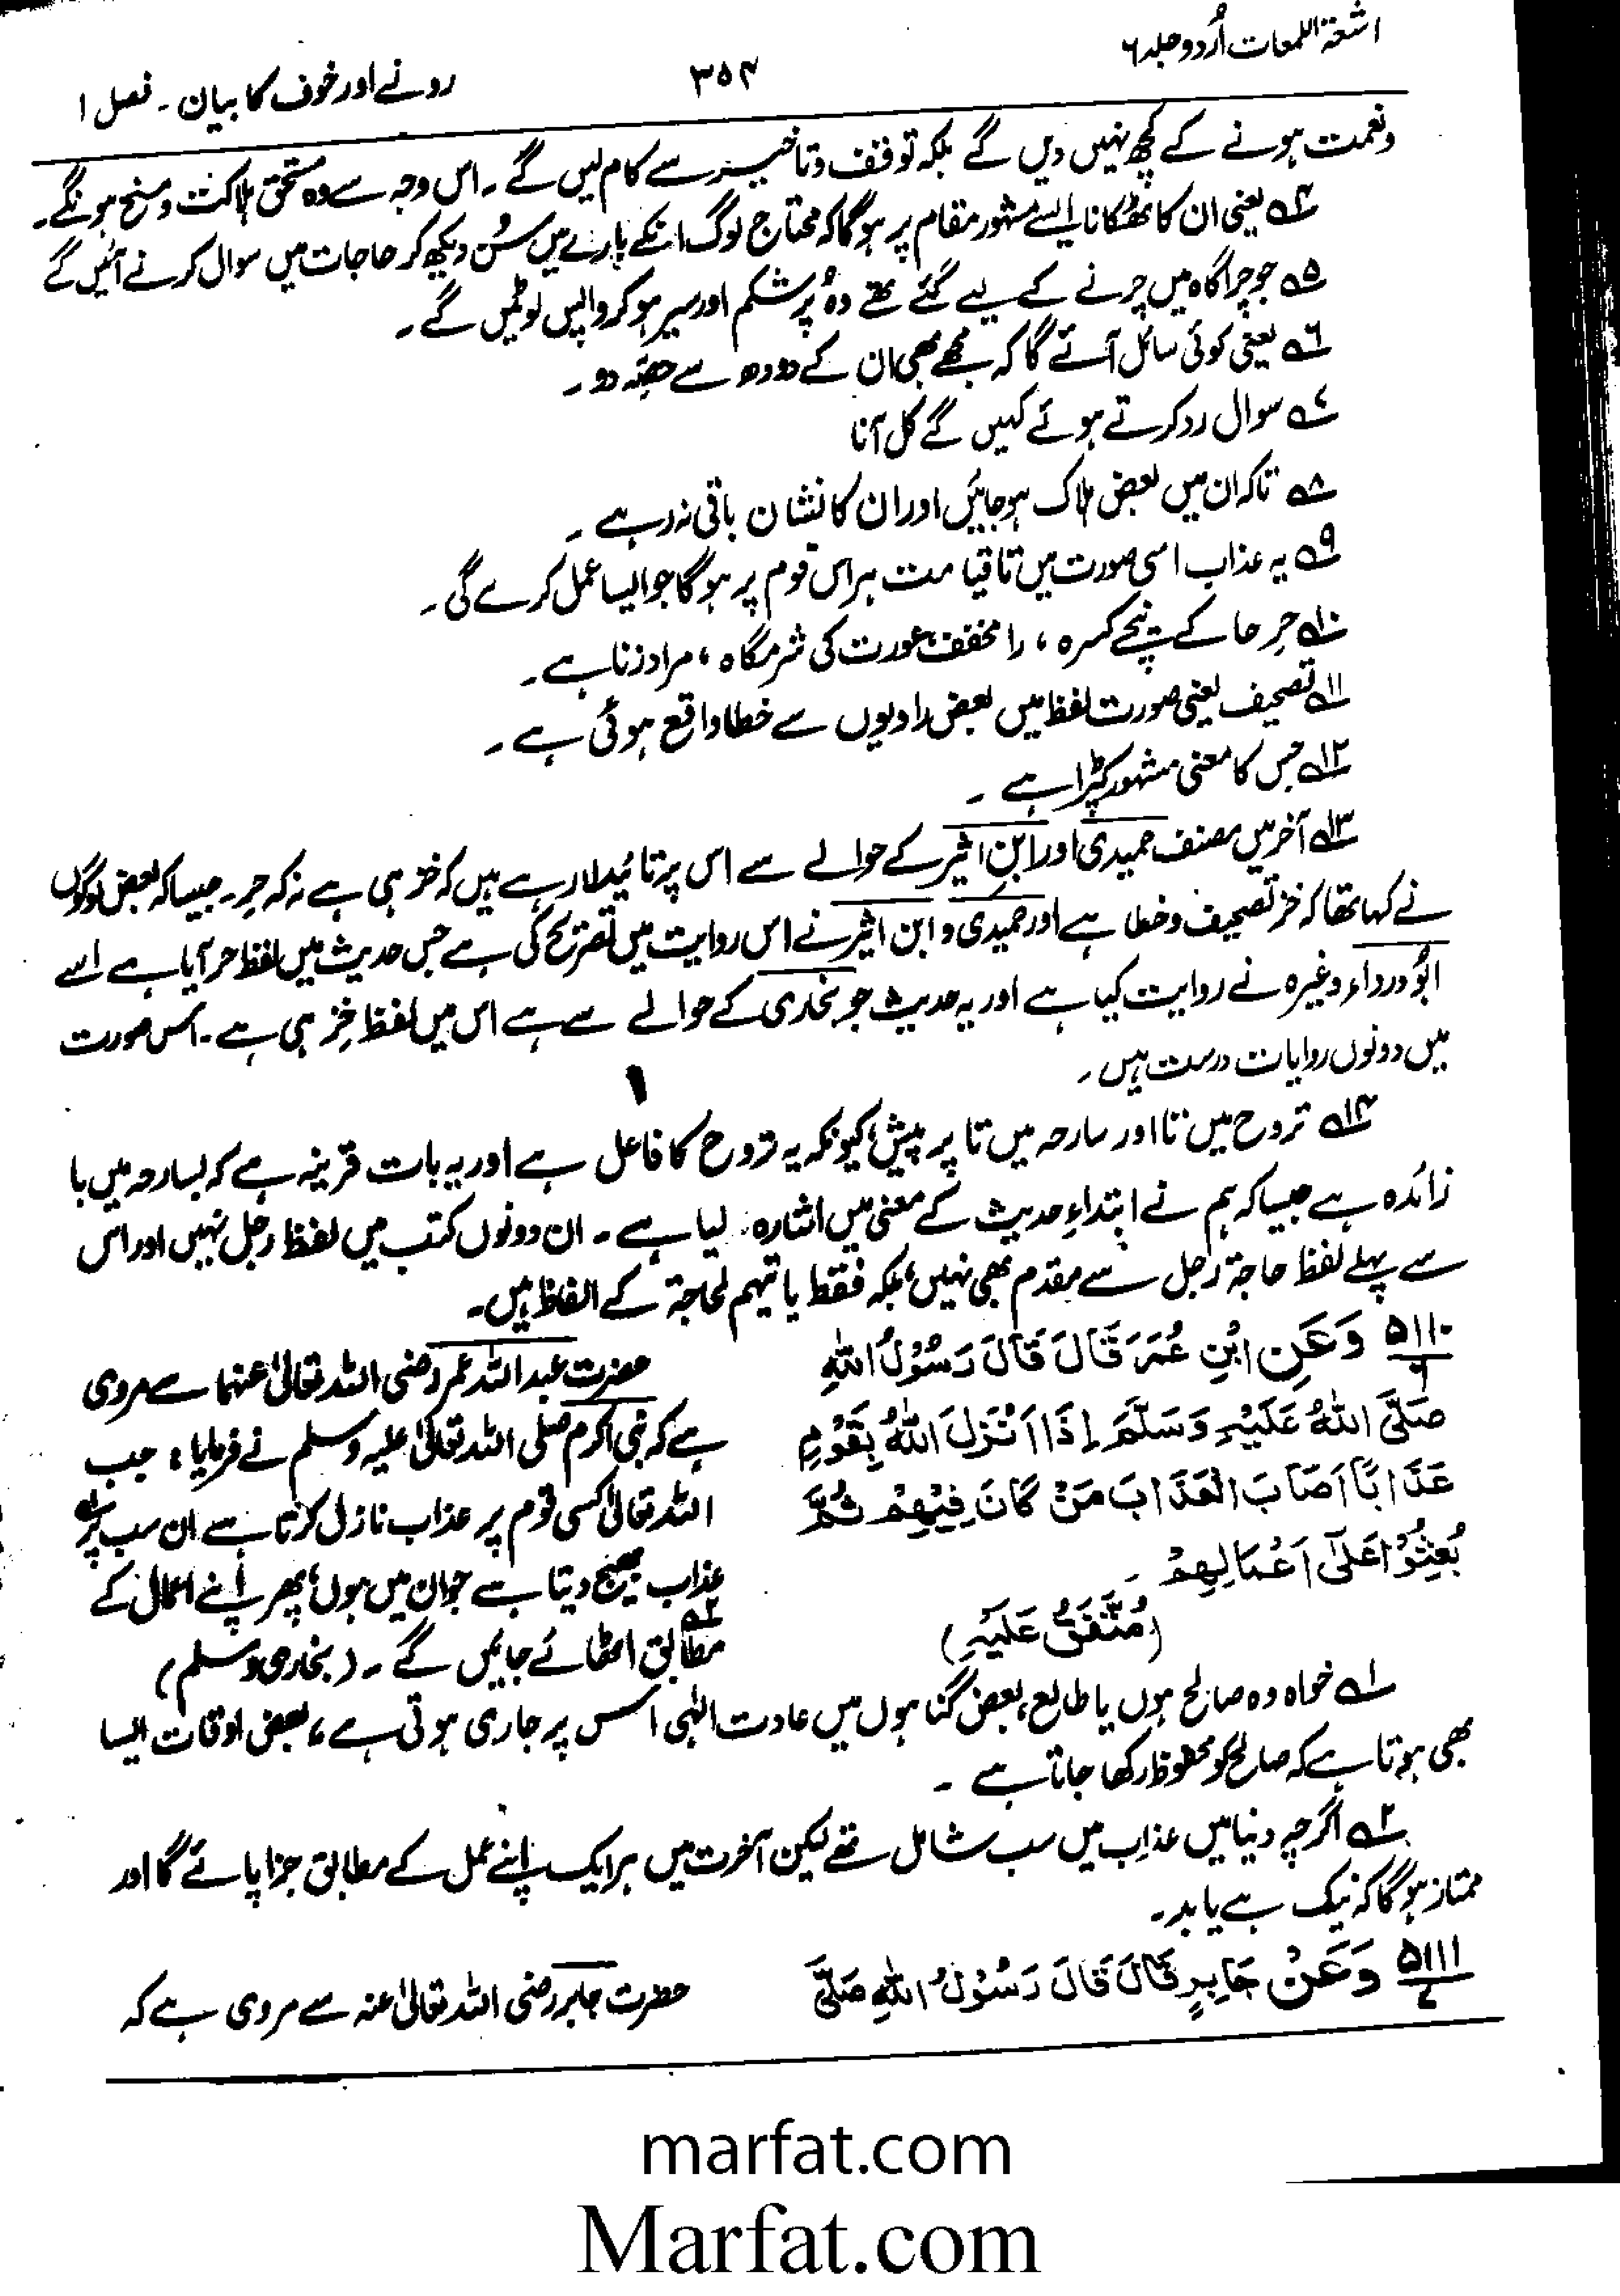 اشعۃ اللمعات اُردو جلد ۶
۳۵۴
رونے اور خوف کا بیان ۔ فصل ۱
ونعمت ہونے کے کچھ نہیں دیں گے بلکہ توقف و تاخیر سے کام لیں گے ۔ اس وجہ سے وہ مستحق ہلاکت و مسخ ہونگے ۔
۴؎ یعنی ان کا ٹھکانا ایسے مشہور مقام پر ہوگا کہ محتاج لوگ انکے بارے میں سُن دیکھ کر حاجات میں سوال کرنے آئیں گے
۵؎ جو چراگاہ میں چرنے کے لیے گئے تھے وہ پُر شکم اور سیر ہو کر واپس لوٹیں گے ۔
۶؎ یعنی کوئی سائل آئے گا کہ مجھے بھی ان کے دودھ سے حصّہ دو ۔
۷؎ سوال رد کرتے ہوئے کہیں گے کل آنا
۸؎ تاکہ ان میں بعض ہلاک ہو جائیں اور ان کا نشان باقی نہ رہے ۔
۹؎ یہ عذاب اسی صورت میں تا قیامت ہر اس قوم پر ہوگا جو ایسا عمل کرے گی ۔
۱۰؎ حِر حا کے نیچے کسرہ ، را مخفف ، عورت کی شرمگاہ ، مراد زنا ہے ۔
۱۱؎ تصحیف یعنی صورت لفظ میں بعض راویوں سے خطا واقع ہوئی ہے ۔
۱۲؎ جس کا معنی مشہور کپڑا ہے ۔
۱۳؎ آخر میں مصنف حمیدی اور ابن اثیر کے حوالے سے اس پر تائید لا رہے ہیں کہ خز ہی ہے نہ کہ حِر ۔ جیسا کہ بعض لوگوں
نے کہا تھا کہ خز تصحیف و خطا ہے اور حمیدی و ابن اثیر نے اس روایت میں تصریح کی ہے جس حدیث میں لفظ حر آیا ہے اسے
ابُو درداء وغیرہ نے روایت کیا ہے اور یہ حدیث جو بخاری کے حوالے سے ہے اس میں لفظ خز ہی ہے ۔ اس صورت
میں دونوں روایات درست ہیں ۔
۱۴؎ تروح میں تا اور سارحہ میں تا پر پیش ، کیونکہ یہ تروح کا فاعل ہے اور یہ بات قرینہ ہے کہ بسارحہ میں با
زائدہ ہے جیسا کہ ہم نے ابتداءِ حدیث کے معنی میں اشارہ لیا ہے ۔ ان دونوں کتب میں لفظ رجل نہیں اور اس
سے پہلے لفظ حاجۃ رجل سے مقدم بھی نہیں ، بلکہ فقط یاتیہم لحاجۃ کے الفاظ ہیں ۔
۵۱۱۰/۶ وَعَنِ ابْنِ عُمَرَ قَالَ قَالَ رَسُوْلُ اللهِ
صَلَّى اللهُ عَلَيْهِ وَسَلَّمَ إِذَا أَنْزَلَ اللهُ بِقَوْمٍ
عَذَابًا أَصَابَ الْعَذَابَ مَنْ كَانَ فِيْهِمْ ثُمَّ
بُعِثُوْا عَلَى أَعْمَالِهِمْ
(مُتَّفَقٌ عَلَيْهِ)
حضرت عبد اللہ عمر رضی اللہ تعالیٰ عنہما سے مروی
ہے کہ نبی اکرم صلی اللہ تعالیٰ علیہ وسلم نے فرمایا : جب
اللہ تعالیٰ کسی قوم پر عذاب نازل کرتا ہے ان سب پر۱؎
عذاب بھیج دیتا ہے جو ان میں ہوں ، پھر اپنے اعمال کے
مطابق۲؎ اٹھائے جائیں گے ۔ (بخاری و مسلم)
۱؎ خواہ وہ صالح ہوں یا طالح ، بعض گناہوں میں عادت الٰہی اس پر جاری ہوتی ہے ، بعض اوقات ایسا
بھی ہوتا ہے کہ صالح کو محفوظ رکھا جاتا ہے ۔
۲؎ اگرچہ دنیا میں عذاب میں سب شامل تھے لیکن آخرت میں ہر ایک اپنے عمل کے مطابق جزا پائے گا اور
ممتاز ہوگا کہ نیک ہے یا بد ۔
۵۱۱۱/۷ وَعَنْ جَابِرٍ قَالَ قَالَ رَسُوْلُ اللهِ صَلَّى
حضرت جابر رضی اللہ تعالیٰ عنہ سے مروی ہے کہ
marfat.com
Marfat.com